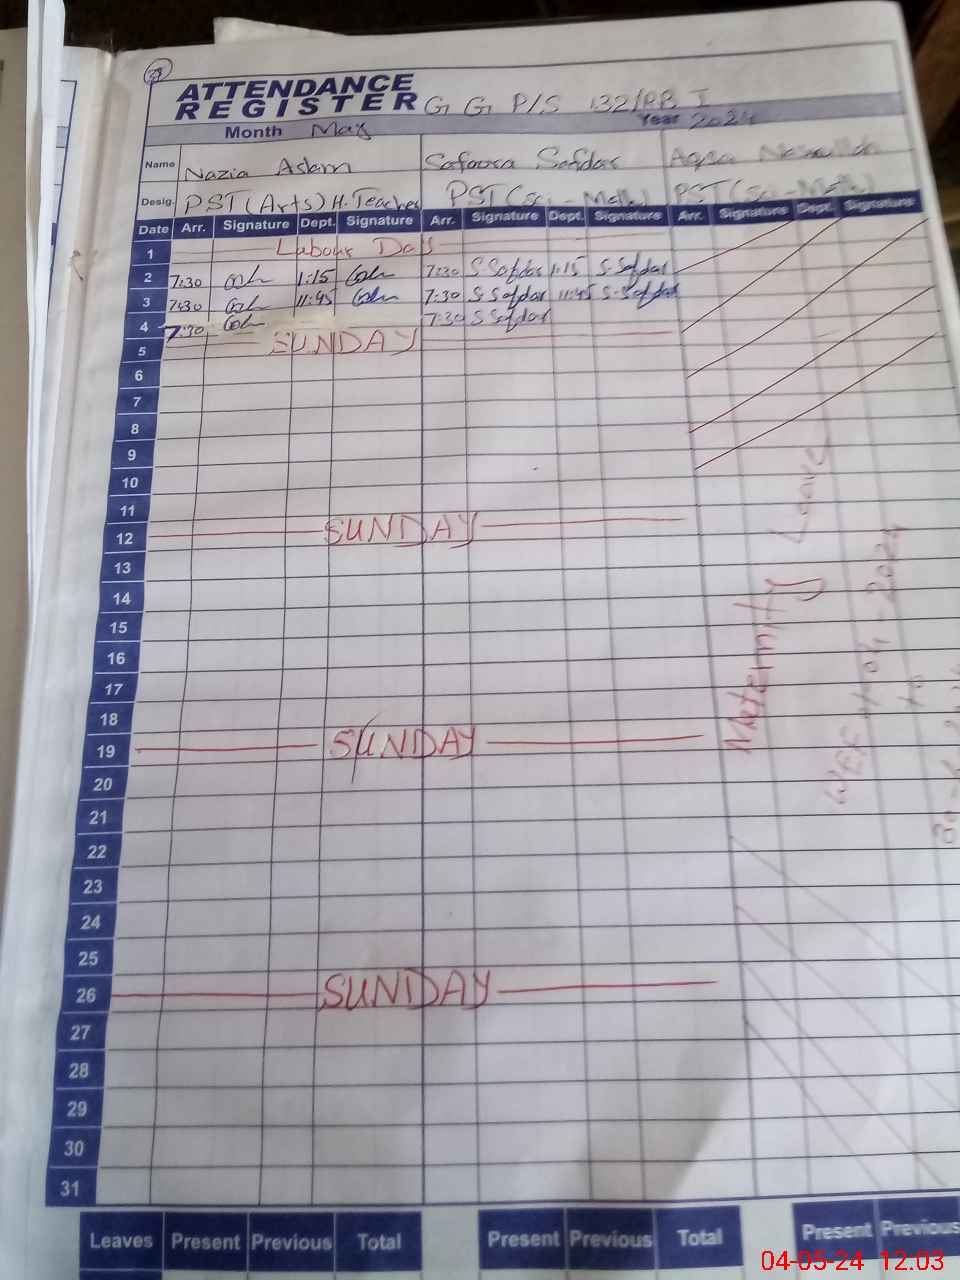 38
ATTENDANCE
REGISTER G G P/S 132/RB I
Month May Year 2024
Name Nazia Aslam Safoora Safdar Aqsa
Desig. PST (Arts) H.Teacher PST (Sci - Math) PST (Sci - Math)
Date Arr. Signature Dept. Signature Arr. Signature Dept. Signature Arr. Signature Dept. Signature
1 Labour Day
2 7:30 1:15 7:30 S.Safdar 1:15 S.Safdar
3 7:30 11:45 7:30 S.Safdar 11:45 S.Safdar
4 7:30 7:30 S Safdar
5 SUNDAY
6
7
8
9
10
11
12 SUNDAY
13
14
15
16
17
18
19 SUNDAY
20
21
22
23
24
25
26 SUNDAY
27
28
29
30
31
Maternity Leave
WEF 04-2024
to
Leaves Present Previous Total Present Previous Total Present Previous
04-05-24 12:03